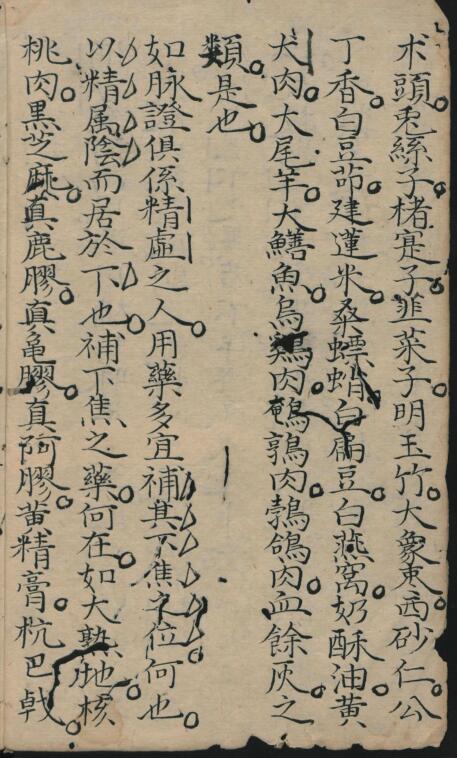 朮頭兎絲子楮寔子韮菜子明玉竹大象東西砂仁公
丁香白豆茆建蓮米桑螵蛸白扁豆白燕窩奶酥油黄
犬肉大尾羊大鱔魚烏鷄肉鵪鶉肉鵓鴿肉血餘灰之
類是也
如脉證俱係精虛之人用藥多宜補其下焦之位何也
以精属陰而居於下也補下焦之藥何在如大熟地核
桃肉黒芝麻真鹿膠真龜膠真阿膠黄精膏杭巴戟